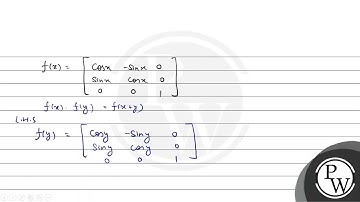 f(x) = [ cosx -sinx 0
sinx cosx 0
0 0 1 ]
f(x). f(y) = f(x+y)
L.H.S
f(y) = [ cosy -siny 0
siny cosy 0
0 0 1 ]
PW